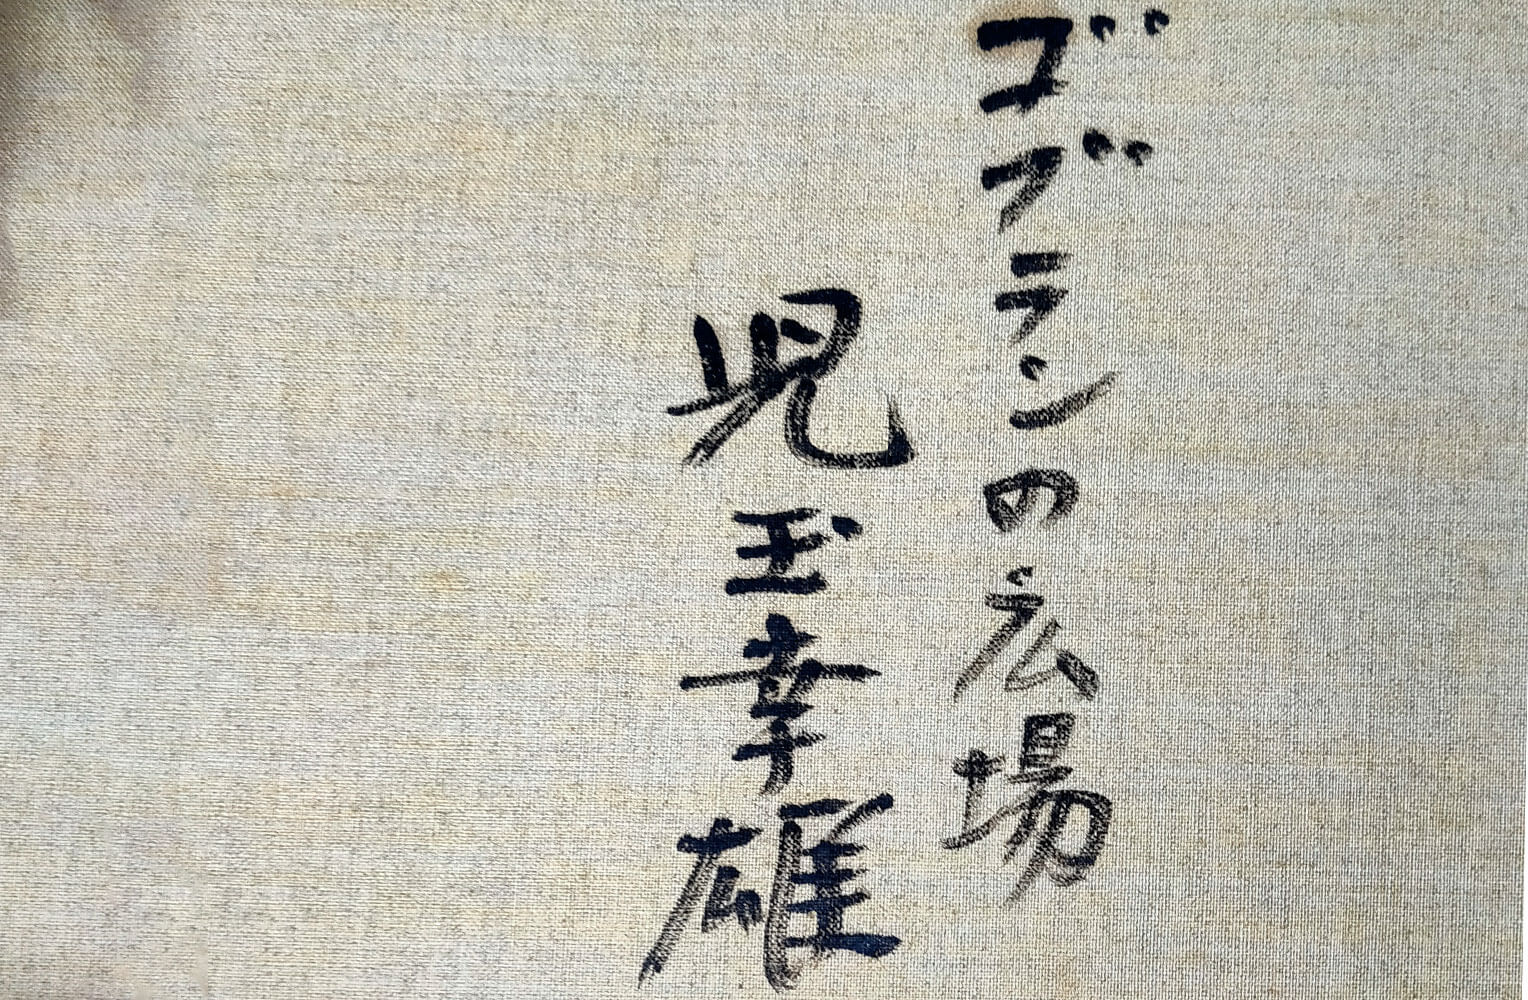 ゴブランの広場
児玉幸雄